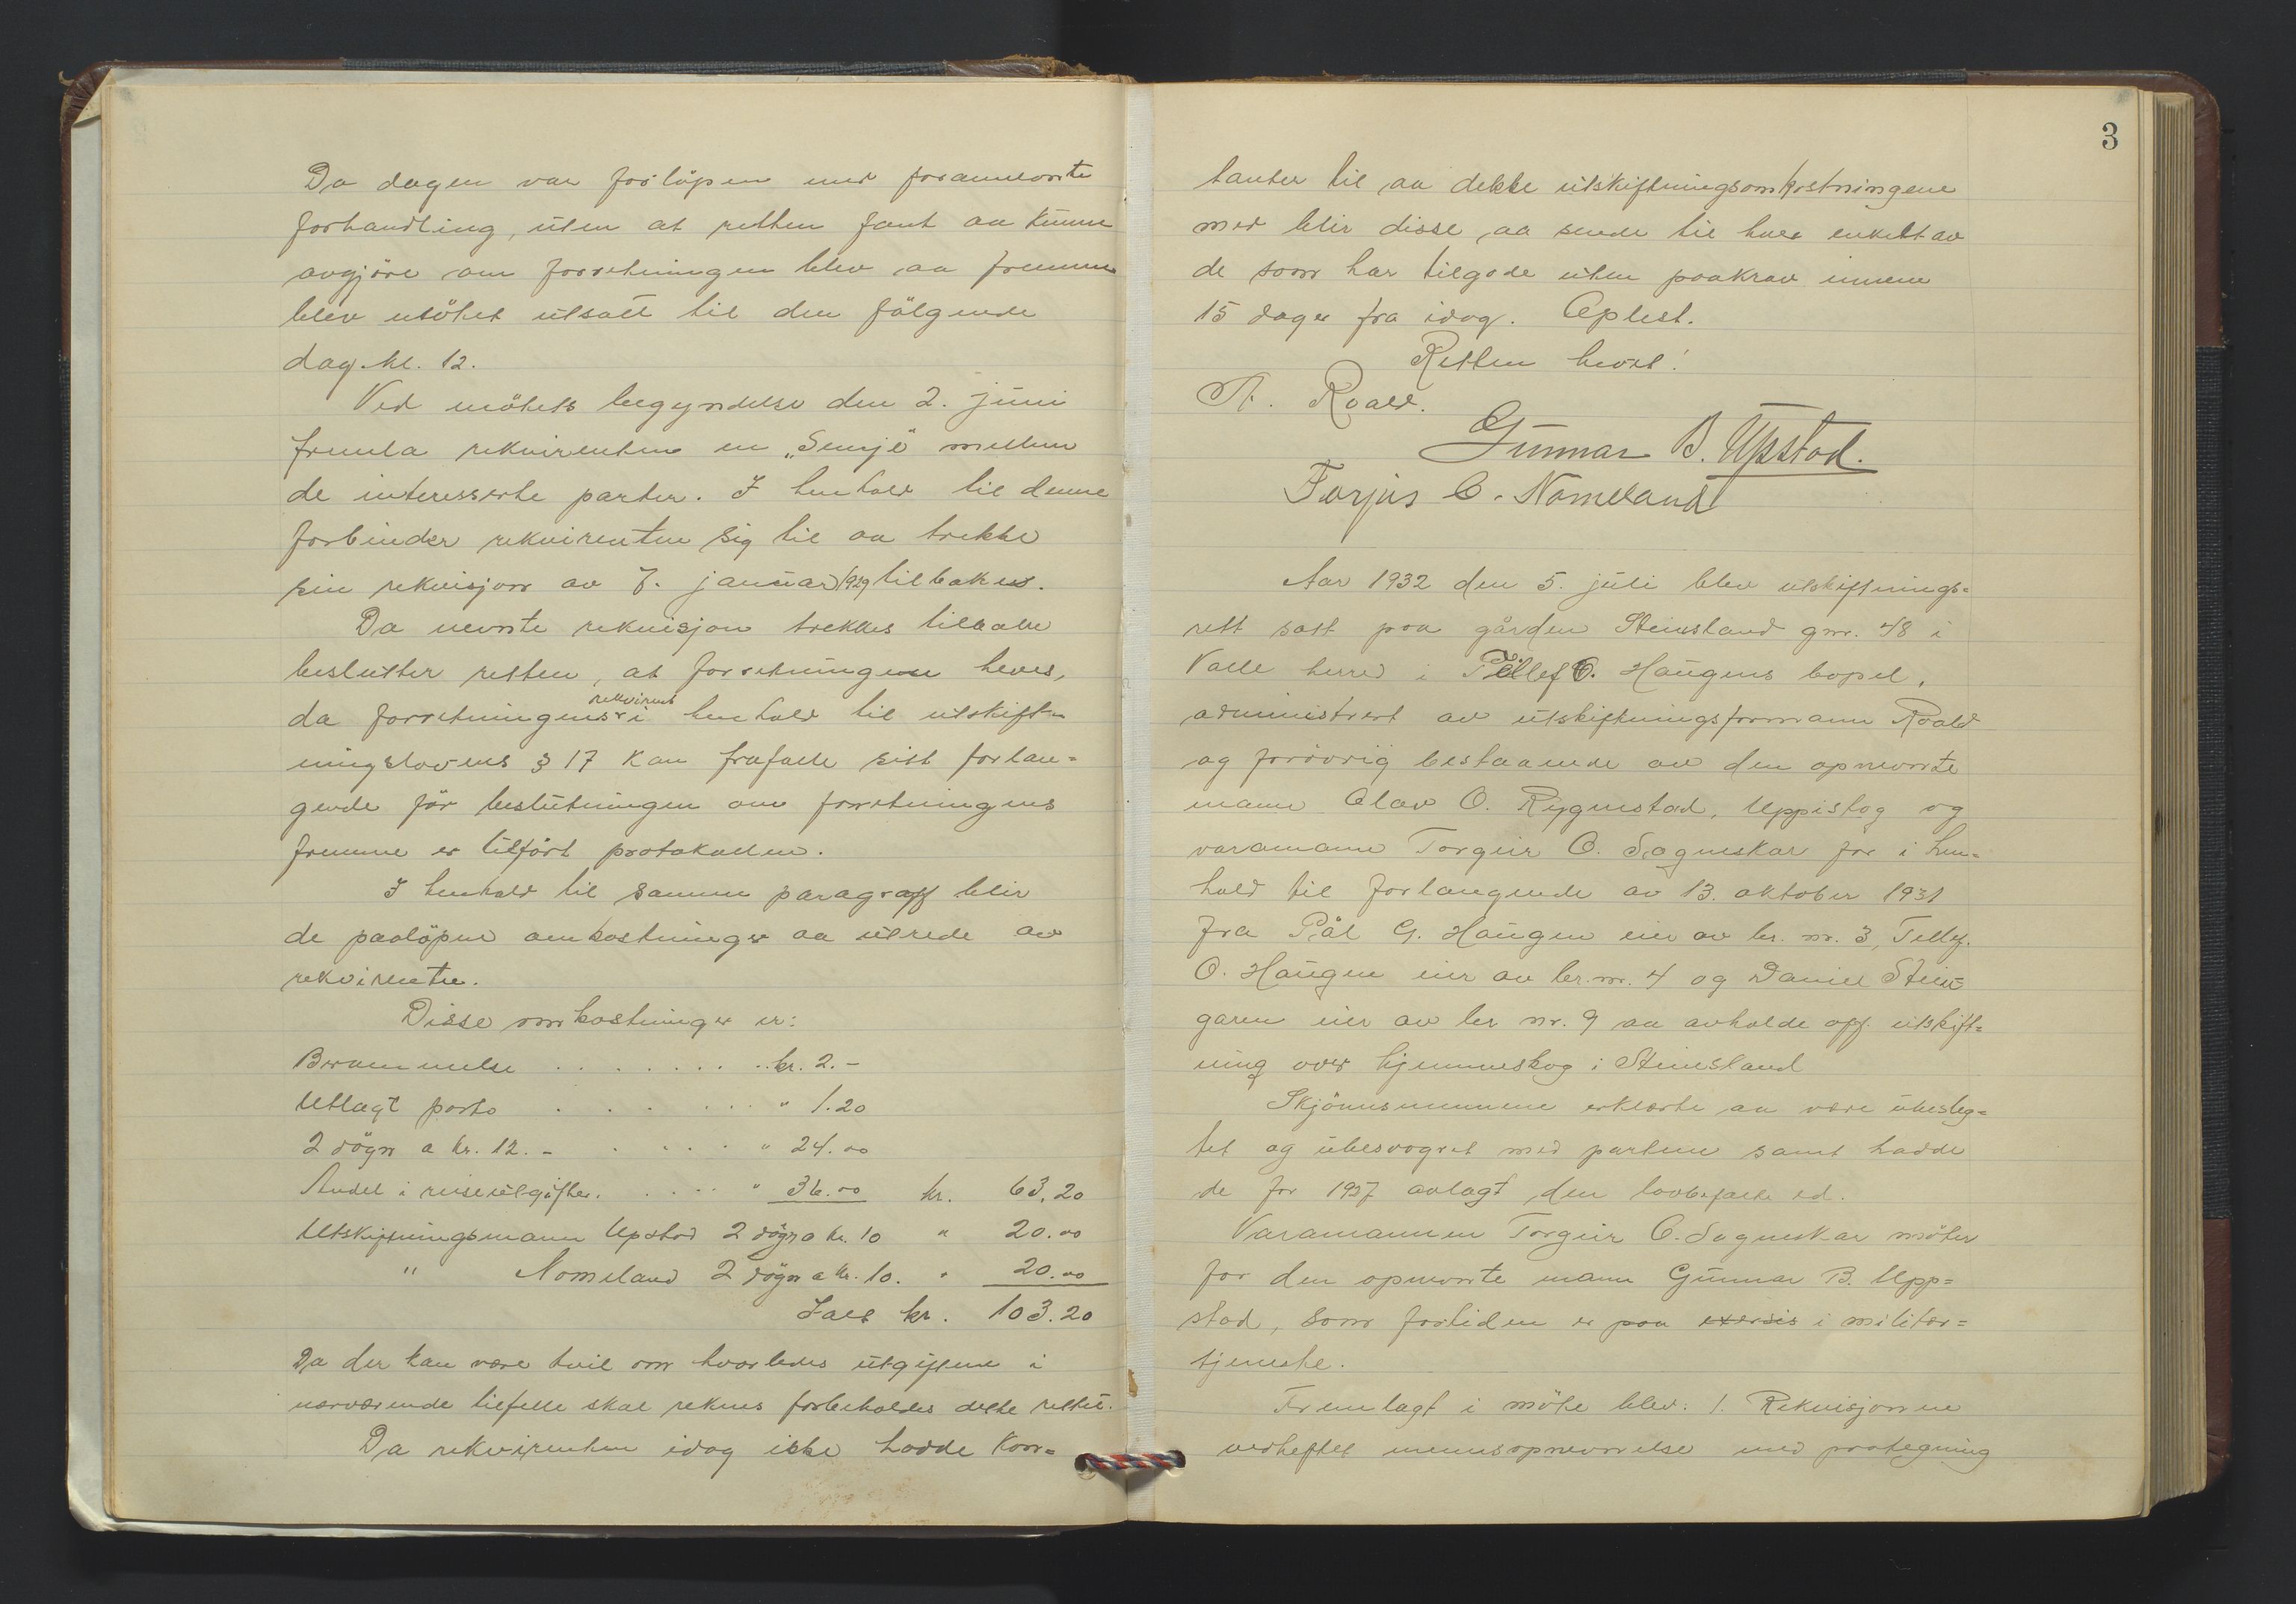 Da dagen var forløpen med forannevnte
forhandling, uten at retten fant aa kunne
avgjøre om forretningen blev aa fremme
blev møtet utsatt til den følgende
dag kl. 12.
Ved møtets begyndelse den 2. juni
fremla rekvirenten en "Semje" mellem
de interesserte parter. I henhold til denne
forbinder rekvirenten sig til aa trekke
sin rekvisjon av 7. januar 1929 tilbake.
Da nevnte rekvisjon trekkes tilbake
beslutter retten, at forretningen heves,
da forretningens rekvirent i henhold til utskift-
ningslovens § 17 kan frafalle sitt forlan=
gende før beslutningen om forretningens
fremme er tilført protokollen.
I henhold til samme paragraff blir
de paaløpne omkostninger aa utrede av
rekvirenten.
Disse omkostninger er:
Berammelse . . . . . . . kr. 2.-
Utlagt porto . . . . . . " 1.20
2 døgn a kr. 12.- . . . . . " 24.00
Andel i reiseutgifter. . . . . " 36.00 kr. 63.20
Utskiftningsmann Upstad 2 døgn a kr. 10 " 20.00
" Nomeland 2 døgn a kr. 10. " 20.00
Ialt kr. 103.20
Da der kan være tvil om hvorledes utgiftene i
nærværende tilfelle skal reknes forbeholdes dette rettet.
Da rekvirenten idag ikke hadde kon=
3
tanter til aa dekke utskiftningsomkostningene
med blir disse aa sende til hver enkelt av
de som har tilgode uten paakrav innen
15 dager fra idag. Oplest.
Retten hevet!
A. Roald.
Gunnar B. Upstad.
Torjus O. Nomeland
Aar 1932 den 5. juli blev utskiftnings=
rett satt paa gården Steinsland gnr. 48 i
Valle herred i Tellef O. Haugens bopel,
administrert av utskiftningsformann Roald
og forøvrig bestaaende av den opnevnte
mann Olav O. Rygnestad, Uppistog og
varamann Torgeir O. Sagneskar for i hen=
hold til forlangende av 13. oktober 1931
fra Pål G. Haugen eier av br. nr. 3, Tellef.
O. Haugen eier av br. nr. 4 og Daniel Stein=
garen eier av br nr. 9 aa avholde off. utskift=
ning over hjemmeskog i Steinsland
Skjønnsmennene erklærte aa være ubesleg=
tet og ubesvogret med partene samt hadde
de for 1937 avlagt den lovbefalte ed.
Varamannen Torgeir O. Sagneskar møter
for den opnevnte mann Gunnar B. Upp=
stad, som fortiden er paa exersis i militær=
tjeneste.
Fremlagt i møte blev: 1. Rekvisjonene
vedheftet mennsopnevnelse med paategning